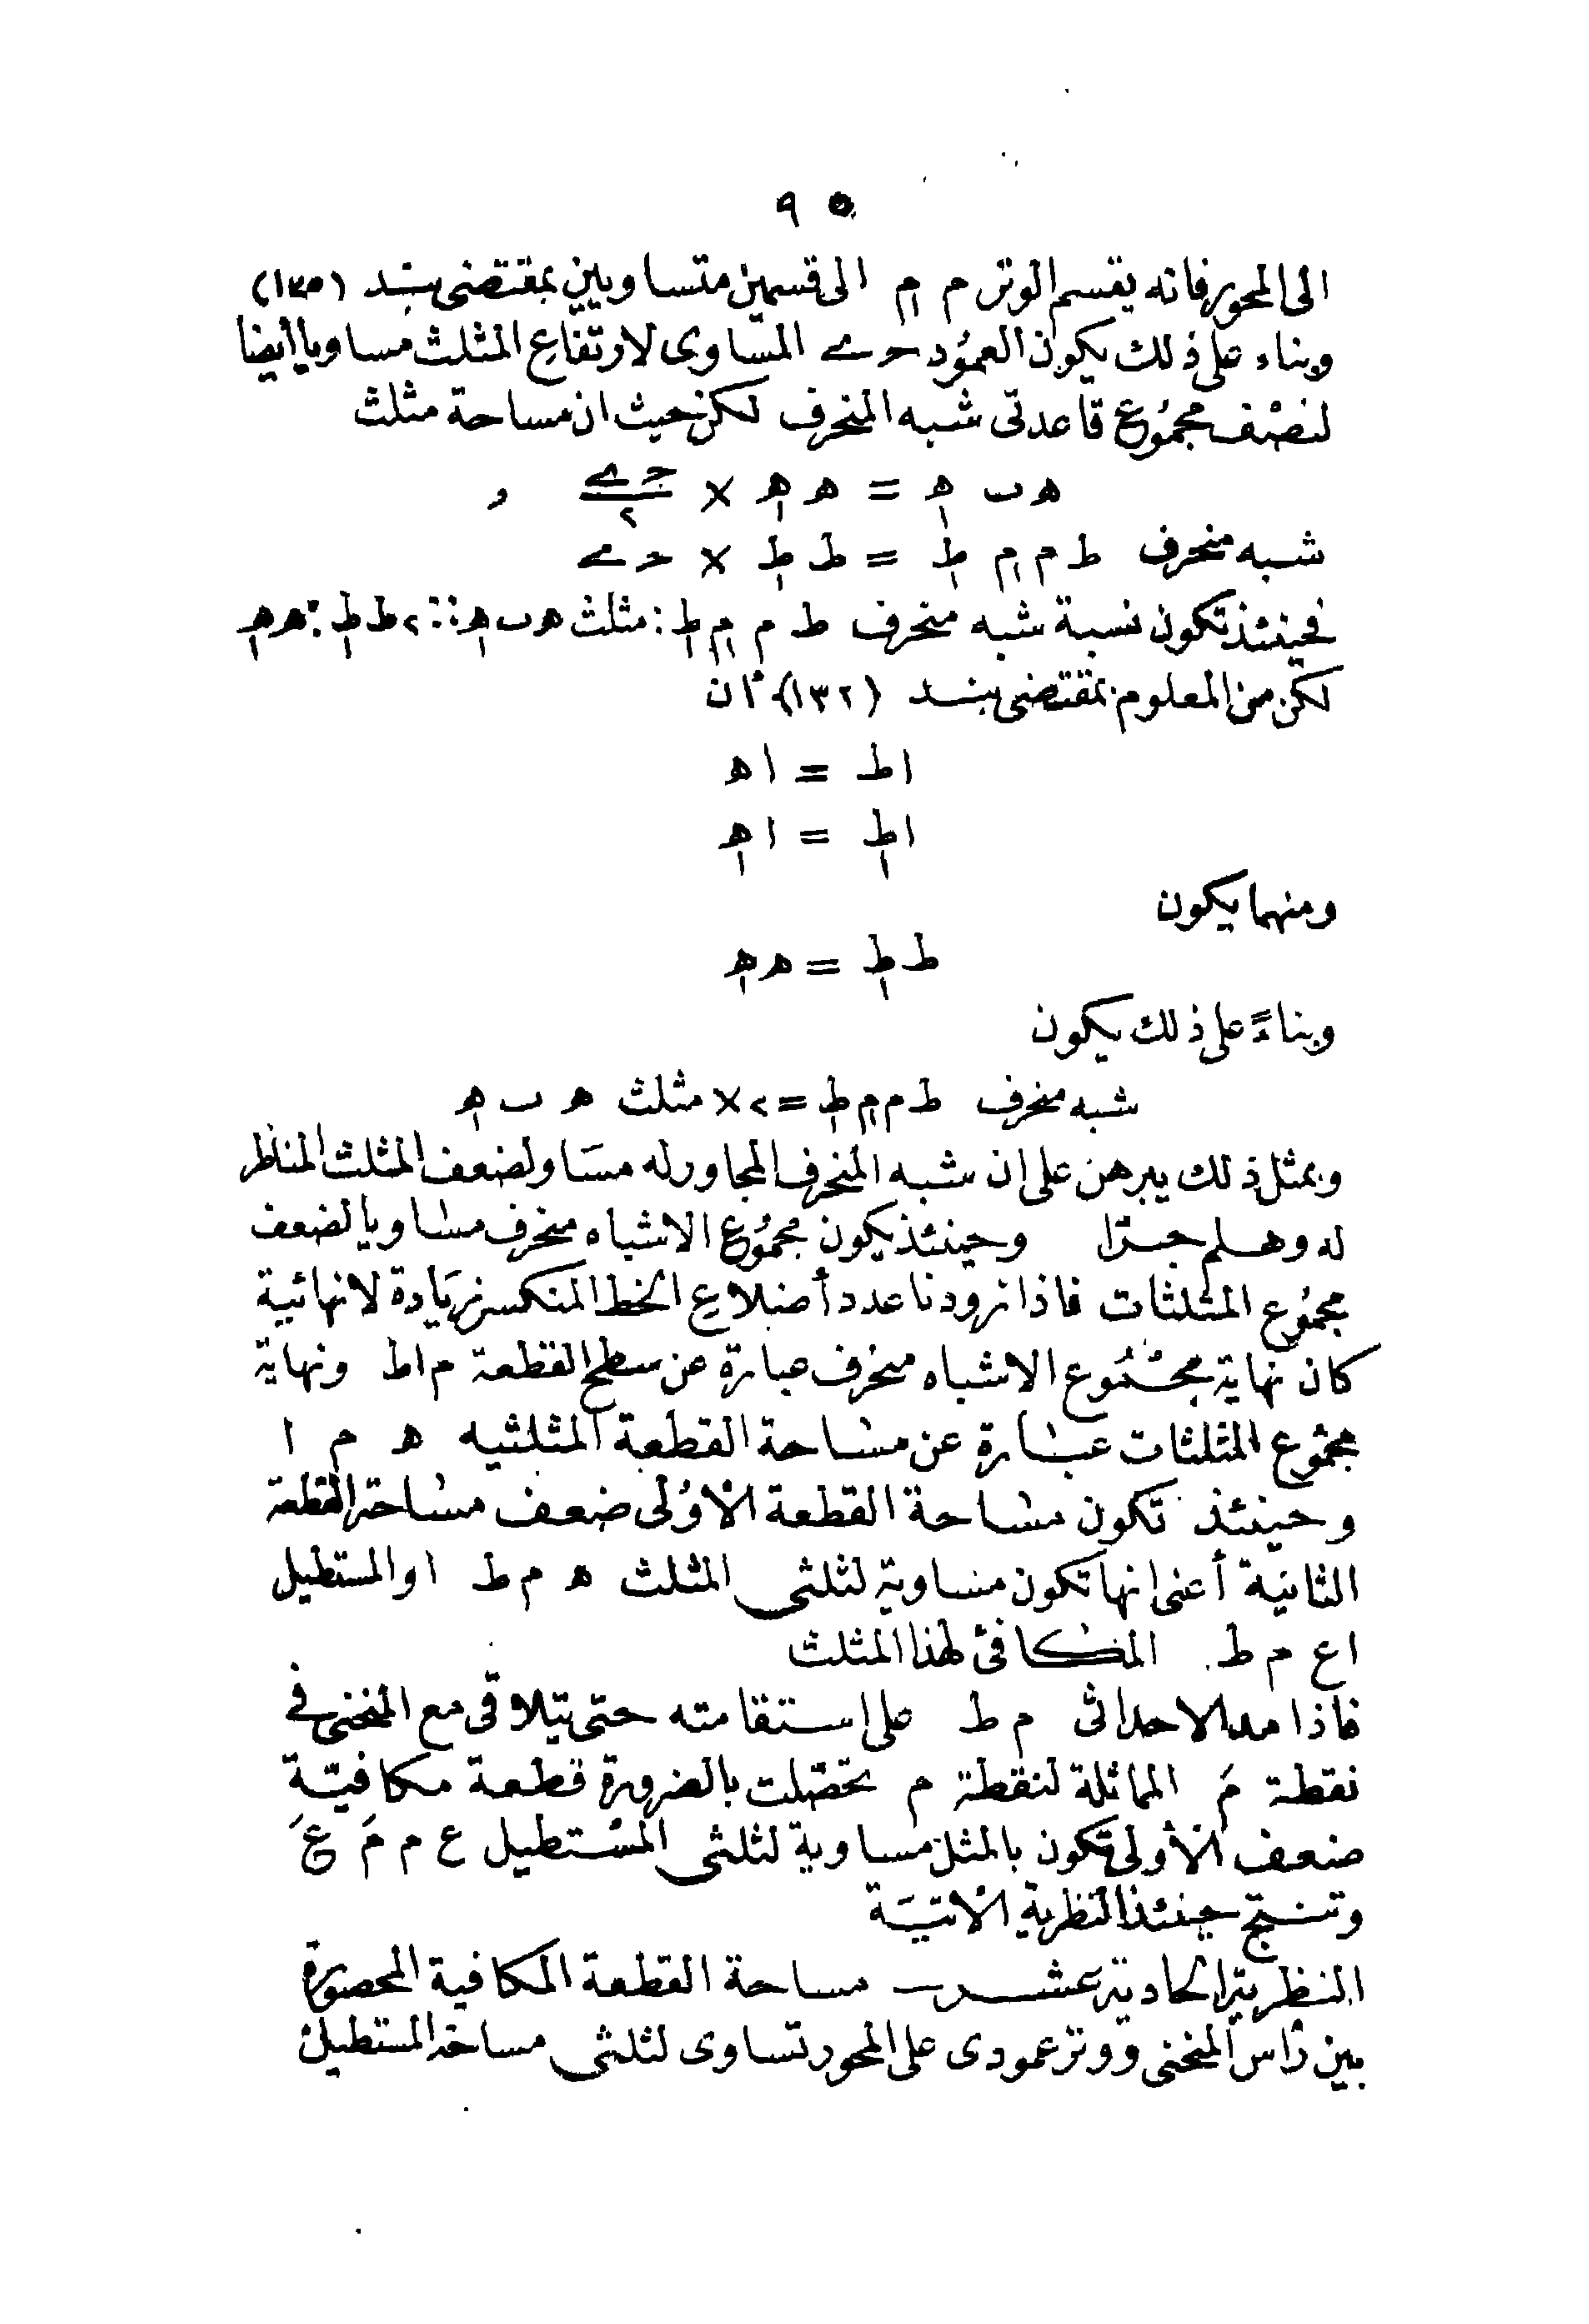 ٩٥
الى المحور فانه يقسم الوتر م م١ الى قسمين متساويين بمقتضى بند (١٣٥)
وبناء على ذلك يكون العمود حـ ى المساوى لارتفاع المثلث مساويا أيضا
لنصف مجموع قاعدتى شبه المنحرف لكن حيث ان مساحة مثلث
ھ ب ھ١ = ھ ھ١ × حـ ى/٢ و
شبه منحرف ط م م١ ط١ = ط ط١ × حـ ى
فحينئذ تكون نسبة شبه منحرف ط م م١ ط١ : مثلث ھ ب ھ١ :: ٢ ط ط١ : ھ ھ١
لكن من المعلوم بمقتضى بند (١٣٢) أن
ا ط = ا ھ
ا ط١ = ا ھ١
ومنهما يكون
ط ط١ = ھ ھ١
وبناءً على ذلك يكون
شبه منحرف ط م م١ ط١ = ٢ × مثلث ھ ب ھ١
وبمثل ذلك يبرهن على ان شبه المنحرف المجاور له مساو لضعف المثلث المناظر
له وهلم جرّا وحينئذ يكون مجموع الاشباه منحرف مساويا لضعف
مجموع المثلثات فاذا زودنا عدد أضلاع الخط المنكسر زيادة لانهائية
كان نهاية مجموع الاشباه منحرف عبارة عن سطح القطعة م ا ط ونهاية
مجموع المثلثات عبارة عن مساحة القطعة المثلثيه ھ م ا
وحينئذ تكون مساحة القطعة الأولى ضعف مساحة القطعة
الثانية أعنى انها تكون مساوية لثلثى المثلث ھ م ط او المستطيل
ا ع م ط المكافئ لهذا المثلث
فاذا مد الاحداثى م ط على استقامته حتى يتلاقى مع المنحنى فى
نقطة مَ المماثلة لنقطة م تحصّلت بالضرورة قطعة مكافيّة
ضعف الأولى تكون بالمثل مساوية لثلثى المستطيل ع م مَ عَ
وتنتج حينئذ النظرية الآتيَة
النظرية الحادية عشر ـ مساحة القطعة المكافية المحصورة
بين رأس المنحنى ووتر عمودى على المحور تساوى لثلثى مساحة المستطيل